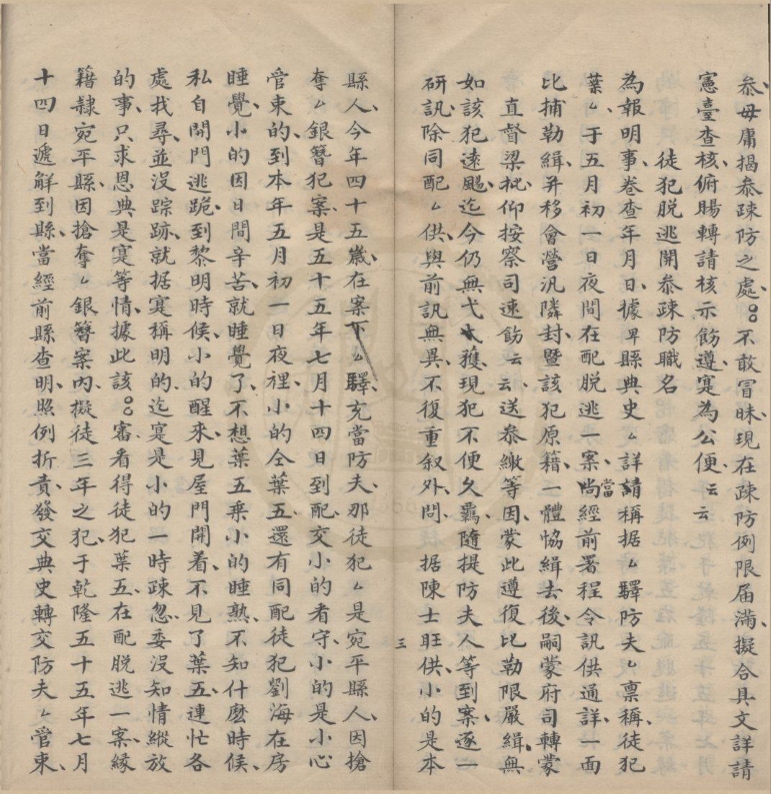 叅毋庸揭叅疎防之處○○不敢冒昧現在疎防例限届滿擬合具文詳請
憲臺查核俯賜轉請核示飭遵寔為公便云云
徒犯脱逃開叅疎防職名
為報明事卷查年月日據卑縣典史ㄙ詳請稱据ㄙ驛防夫ㄙ稟稱徒犯
葉ㄙ于五月初一日夜間在配脱逃一案當經前署程令訊供通詳一面
比捕勒緝并移會營汎隣封暨該犯原籍一體恊緝去後嗣蒙府司轉蒙
直督梁批仰按察司速飭云云送叅繳等因蒙此遵復比勒限嚴緝無
如該犯遠颺迄今仍無弋獲現犯不便久羈隨提防夫人等到案逐一
研訊除同配ㄙ供與前訊無異不復重叙外問据陳士旺供小的是本
三
縣人今年四十五嵗在案下ㄙ驛充當防夫那徒犯ㄙ是宛平縣人因搶
奪ㄙ銀簪犯案是五十五年七月十四日到配交小的看守小的是小心
管束的到本年五月初一日夜裡小的仝葉五還有同配徒犯劉海在房
睡覺小的因日間辛苦就睡覺了不想葉五乘小的睡熟不知什麼時候
私自開門逃跑到黎明時候小的醒來見屋門開着不見了葉五連忙各
處找尋並沒踪跡就据寔稱明的迄寔是小的一時疎忽委沒知情縱放
的事只求恩典是寔等情據此該○○審看得徒犯葉五在配脱逃一案縁
籍隷宛平縣因搶奪ㄙ銀簪案內擬徒三年之犯于乾隆五十五年七月
十四日遞解到縣當經前縣查明照例折責發交典史轉交防夫ㄙ管束